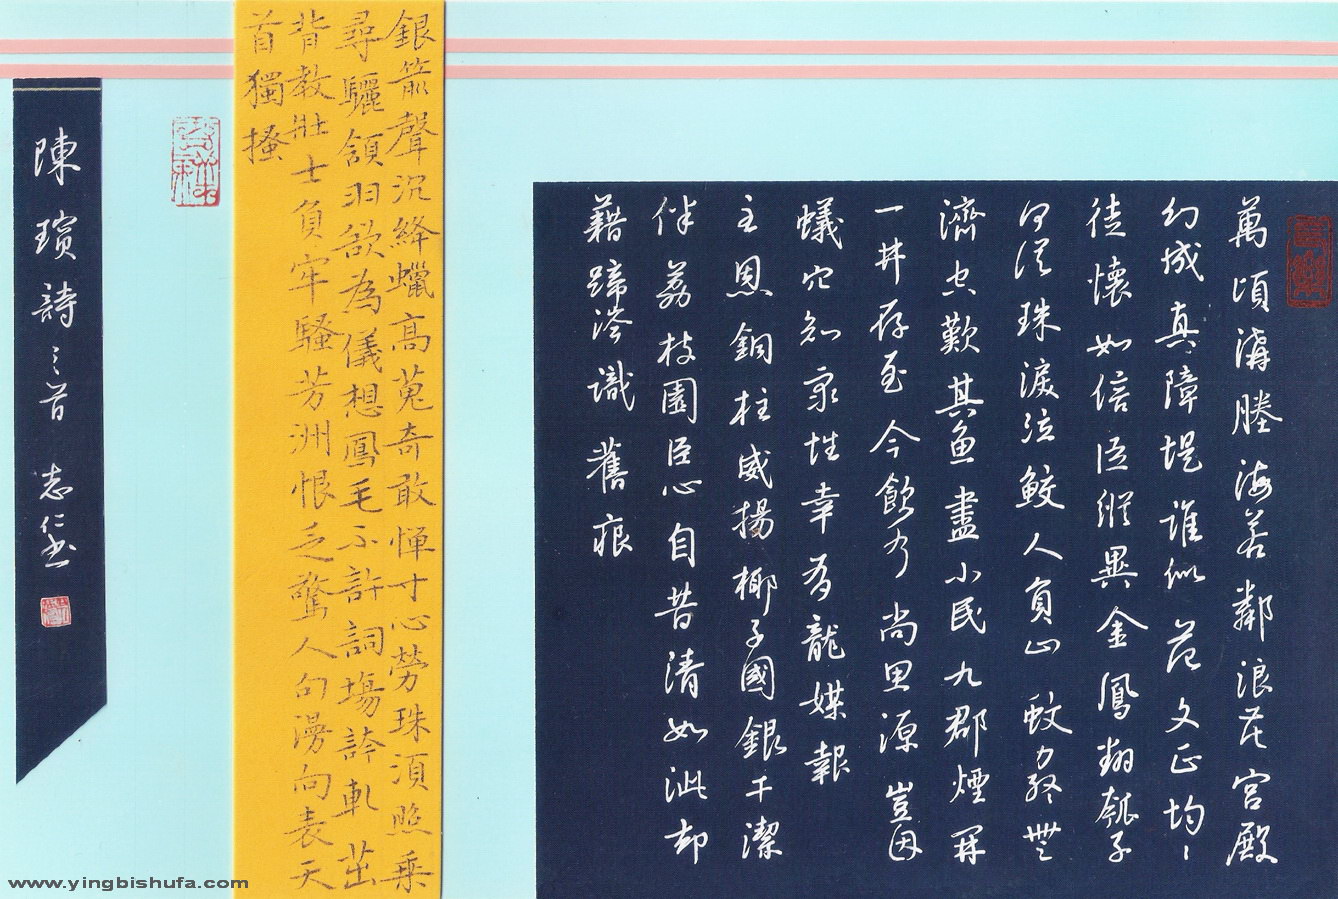 萬頃溝塍海若鄰浪花宮殿
幻城真障堤誰似范文正均々
徒懷如信臣縱異金鳳翔瓠子
何從珠淚泣鮫人負山蚊力終無
濟空歎其魚盡小民九郡煙開
一井存至今飲水尚思源豈因
蟻穴知泉性幸有龍媒報
主恩銅柱威揚椰子國銀干潔
伴荔枝園臣心自昔清如泚却
藉蹄涔識舊痕
銀箭聲沉絳蠟高蒐奇敢憚寸心勞珠須照乘
尋驪頷羽欲為儀想鳳毛不許詞場誇軋茁
背教壯士負牢騷芳洲恨乏驚人句漫向表天
首獨搔
陳璸詩三首 志仁書
www.yingbishufa.com